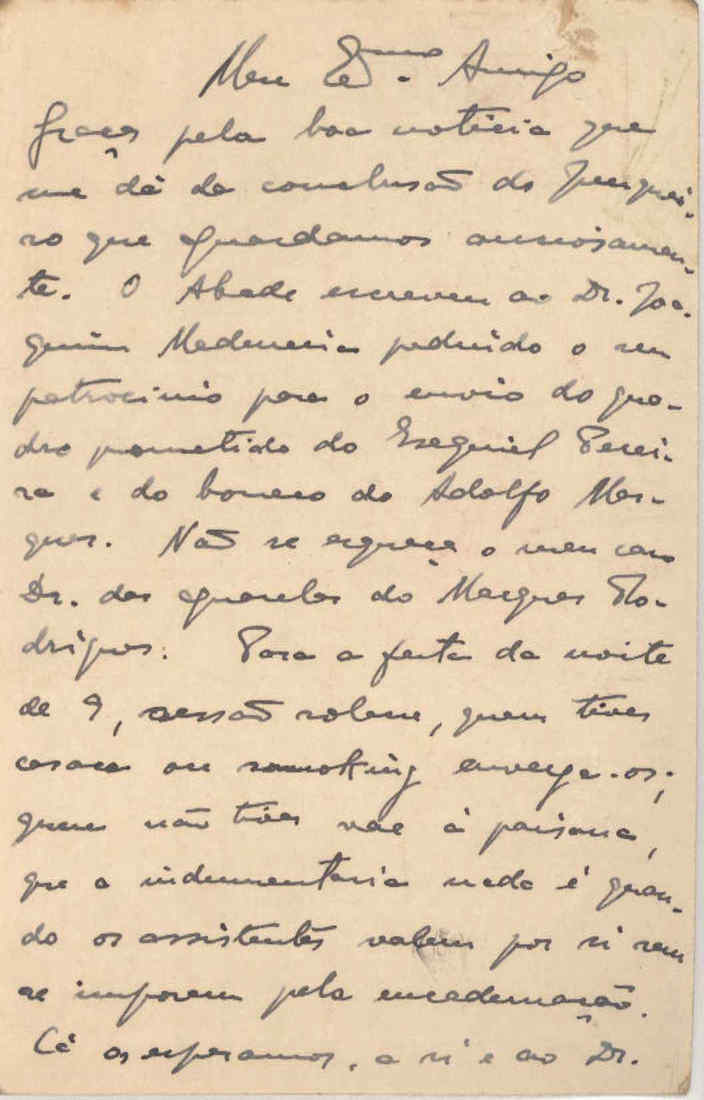 Meu Exmo. Amigo
Graças pela boa noticia que
me dá da conclusão do Junquei-
ro que aguardamos anciosamen-
te. O Abade escreveu ao Dr. Joa-
quim Madureira pedindo o seu
patrocinio para o envio do qua-
dro prometido do Ezequiel Perei-
ra e do boneco do Adolfo Mar-
ques. Não se esqueça o meu caro
Dr. das aguarelas do Marques Ro-
drigues. Para a festa da noite
de 9, sessão solene, quem tiver
casaca ou smoking enverga-os;
quem não tiver vae á paisana,
que a indumentaria nada é quan-
do os assistentes valem por si sem
se imporem pela encadernação.
Cá os esperamos, a si e ao Dr.